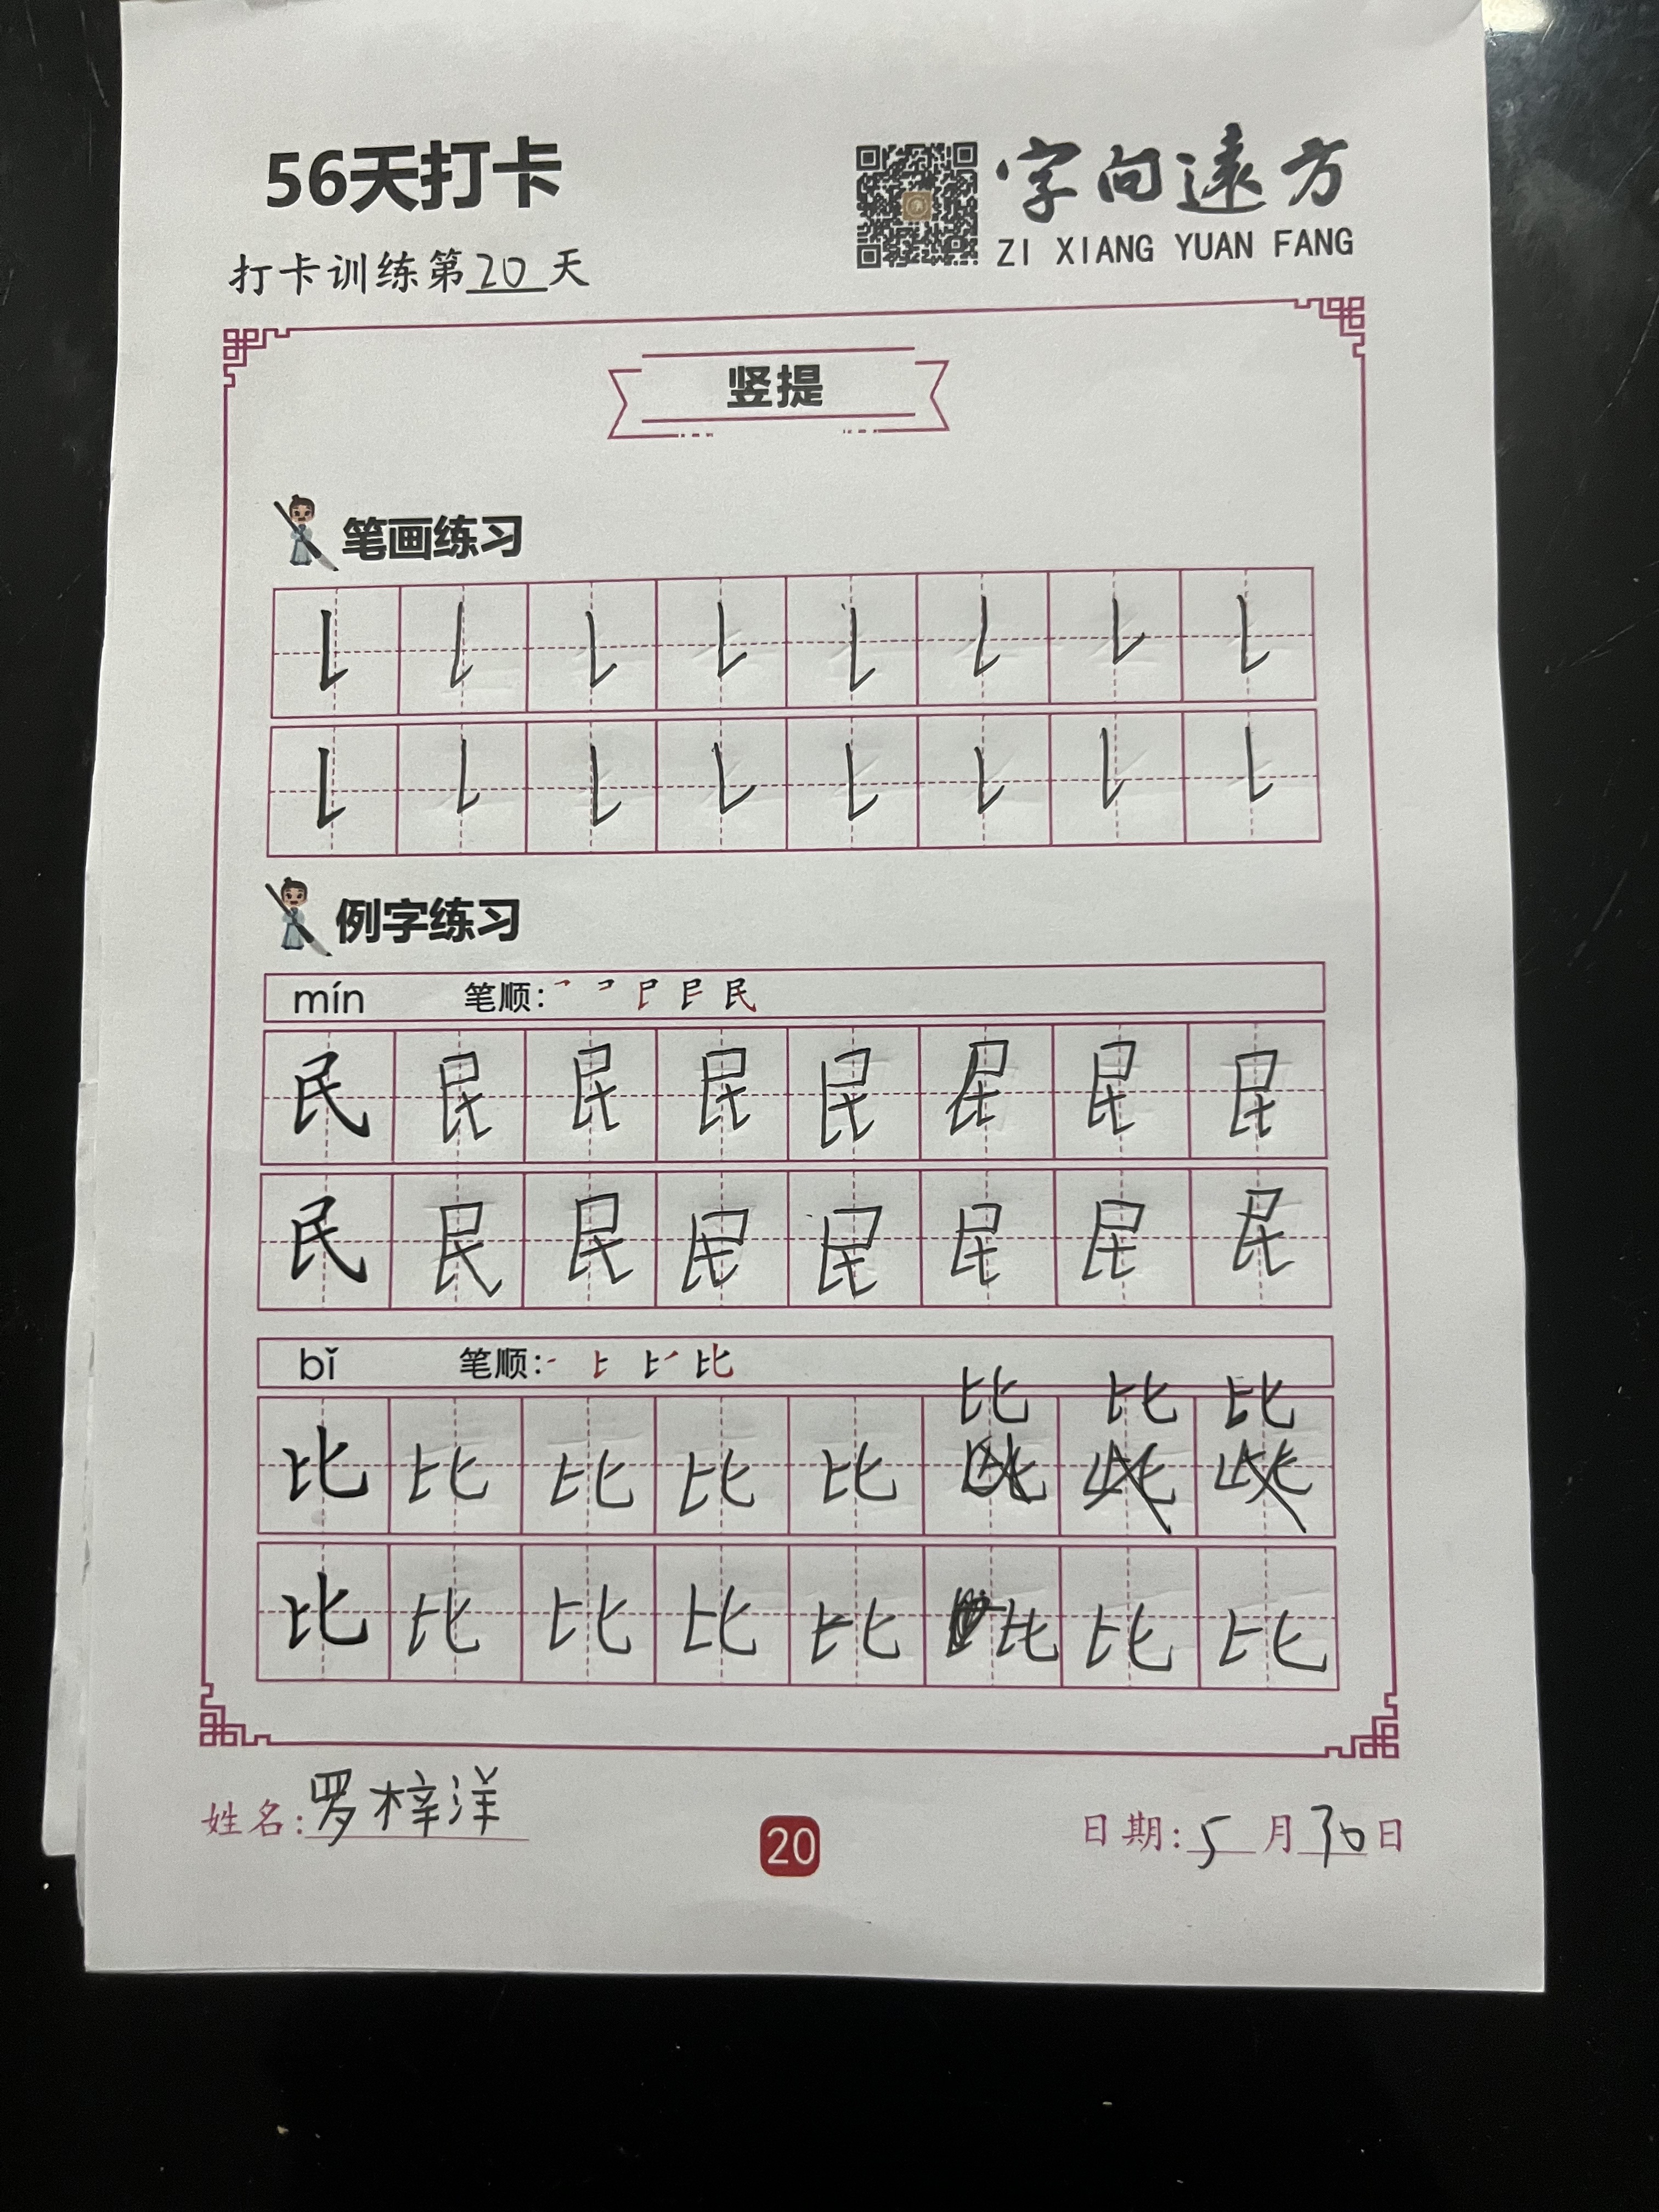 56天打卡
字向遠方
ZI XIANG YUAN FANG
打卡训练第20天
竖提
笔画练习
例字练习
mín 笔顺:
民 民 民 民 民 民 民 民
民 民 民 民 民 民 民 民
bǐ 笔顺:
比 比 比
比 比 比 比 比
比 比 比 比 比 比 比 比
姓名:罗梓洋
20
日期:5月30日